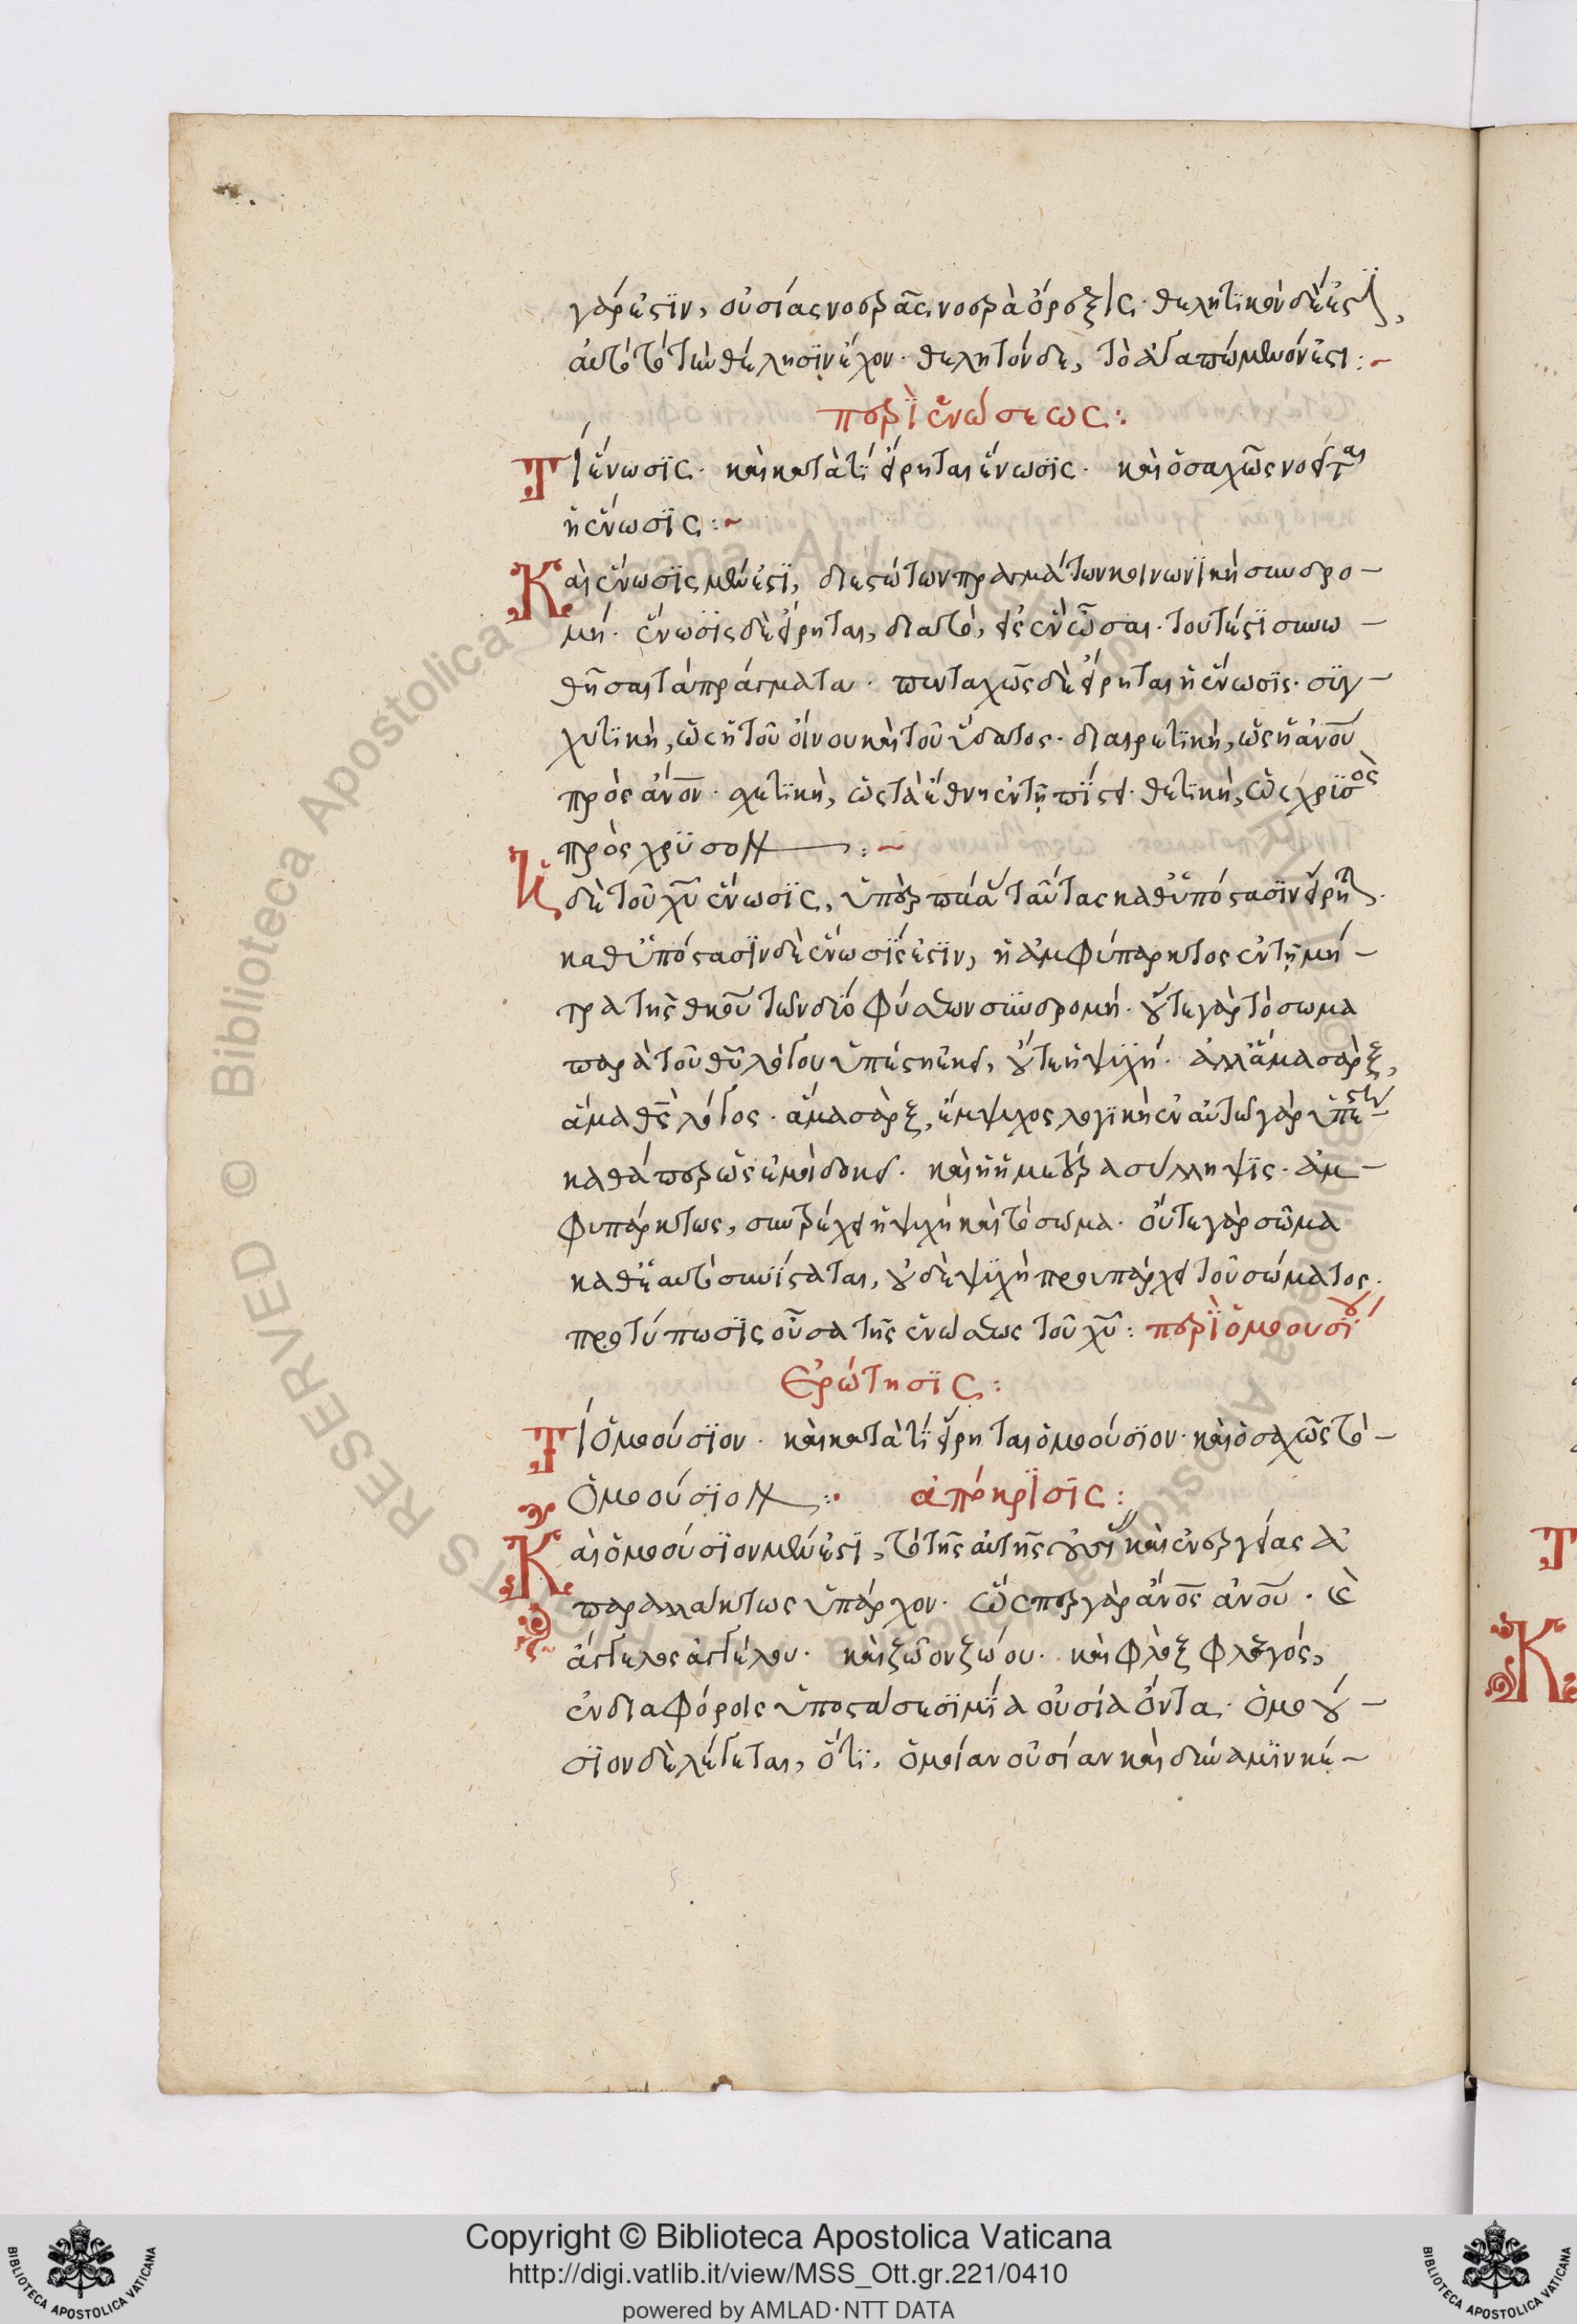 γάρ ἐστιν, οὐσίας νοερᾶς, νοερὰ ὄρεξις· θελητικὸν δέ ἐστι,
αὐτὸ τὸ τὴν θέλησιν ἔχον· θελητὸν δὲ, τὸ ἀγαπώμενόν ἐστι:~
περὶ ἑνώσεως:
Τί ἕνωσις· καὶ κατὰ τί εἴρηται ἕνωσις· καὶ ὁσαχῶς νοεῖται
ἡ ἕνωσις:~
Καὶ ἕνωσις μέν ἐστι, διεστώτων πραγμάτων κοινωνικὴ συνδρο-
μή· ἕνωσις δὲ εἴρηται, διὰ τὸ, εἰς ἓν ὦσαι· τουτέστι συνω-
θῆσαι τὰ πράγματα· πενταχῶς δὲ εἴρηται ἡ ἕνωσις· συγ-
χυτικὴ, ὡς ἡ τοῦ οἴνου καὶ τοῦ ὕδατος· διαιρετικὴ, ὡς ἡ ἀνου
πρὸς ἀνον· σχετικὴ, ὡς τὰ ἔθνη ἐν τῇ πίστει· θετικὴ, ὡς χρυσὸς
πρὸς χρυσον:~
Ἡ δὲ τοῦ χυ ἕνωσις, ὑπὲρ πάσας ταύτας καθ' ὑπόστασιν εἴρηται.
καθ' ὑπόστασιν δὲ ἕνωσίς ἐστιν, ἡ ἀμφύπαρκτος ἐν τῇ μή-
τρα τῆς θκου τῶν δύο φύσεων συνδρομή· οὔτε γὰρ τὸ σωμα
παρὰ τοῦ θυ λόγου ὑπέστηκει, οὔτε ἡ ψυχή· ἀλλ' ἅμα σὰρξ,
ἅμα θς λόγος· ἅμα σὰρξ, ἔμψυχος λογικὴ ἐν αὐτῶ γὰρ ὑπέστη
καθάπερ ὡς ἐμοὶ δοκεῖ· καὶ ἡ ἡμετέρα σύλληψις· ἀμ-
φυπάρκτως, συντρέχει ἡ ψυχὴ καὶ τὸ σωμα· οὔτε γὰρ σῶμα
καθ' ἑαυτὸ συνίσταται, οὐδὲ ψυχὴ προυπάρχει τοῦ σώματος.
προτύπωσις οὖσα τῆς ἑνώσεως τοῦ χυ: περὶ ὁμοουσίου
Ἐρώτησις:
Τί ὁμοούσιον· καὶ κατὰ τί εἴρηται ὁμοούσιον· καὶ ὁσαχῶς τὸ-
ὁμοούσιον:· ἀπόκρισις:
Καὶ ὁμοούσιον μέν ἐστι, τὸ τῆς αὐτῆς οὐσίας καὶ ἐνεργείας ἀ
παραλλάκτως ὑπάρχον· ὥσπερ γὰρ ἀνος ἀνου· καὶ
ἄγγελος ἀγγέλου· καὶ ζῶον ζώου· καὶ φλὸξ φλογός,
ἐν διαφόροις ὑποστάσεσι μία οὐσία ὄντα· ὁμοού-
σιον δὲ λέγεται, ὅτι, ὁμοίαν οὐσίαν καὶ δύναμιν κέ-
Copyright © Biblioteca Apostolica Vaticana
http://digi.vatlib.it/view/MSS_Ott.gr.221/0410
powered by AMLAD·NTT DATA